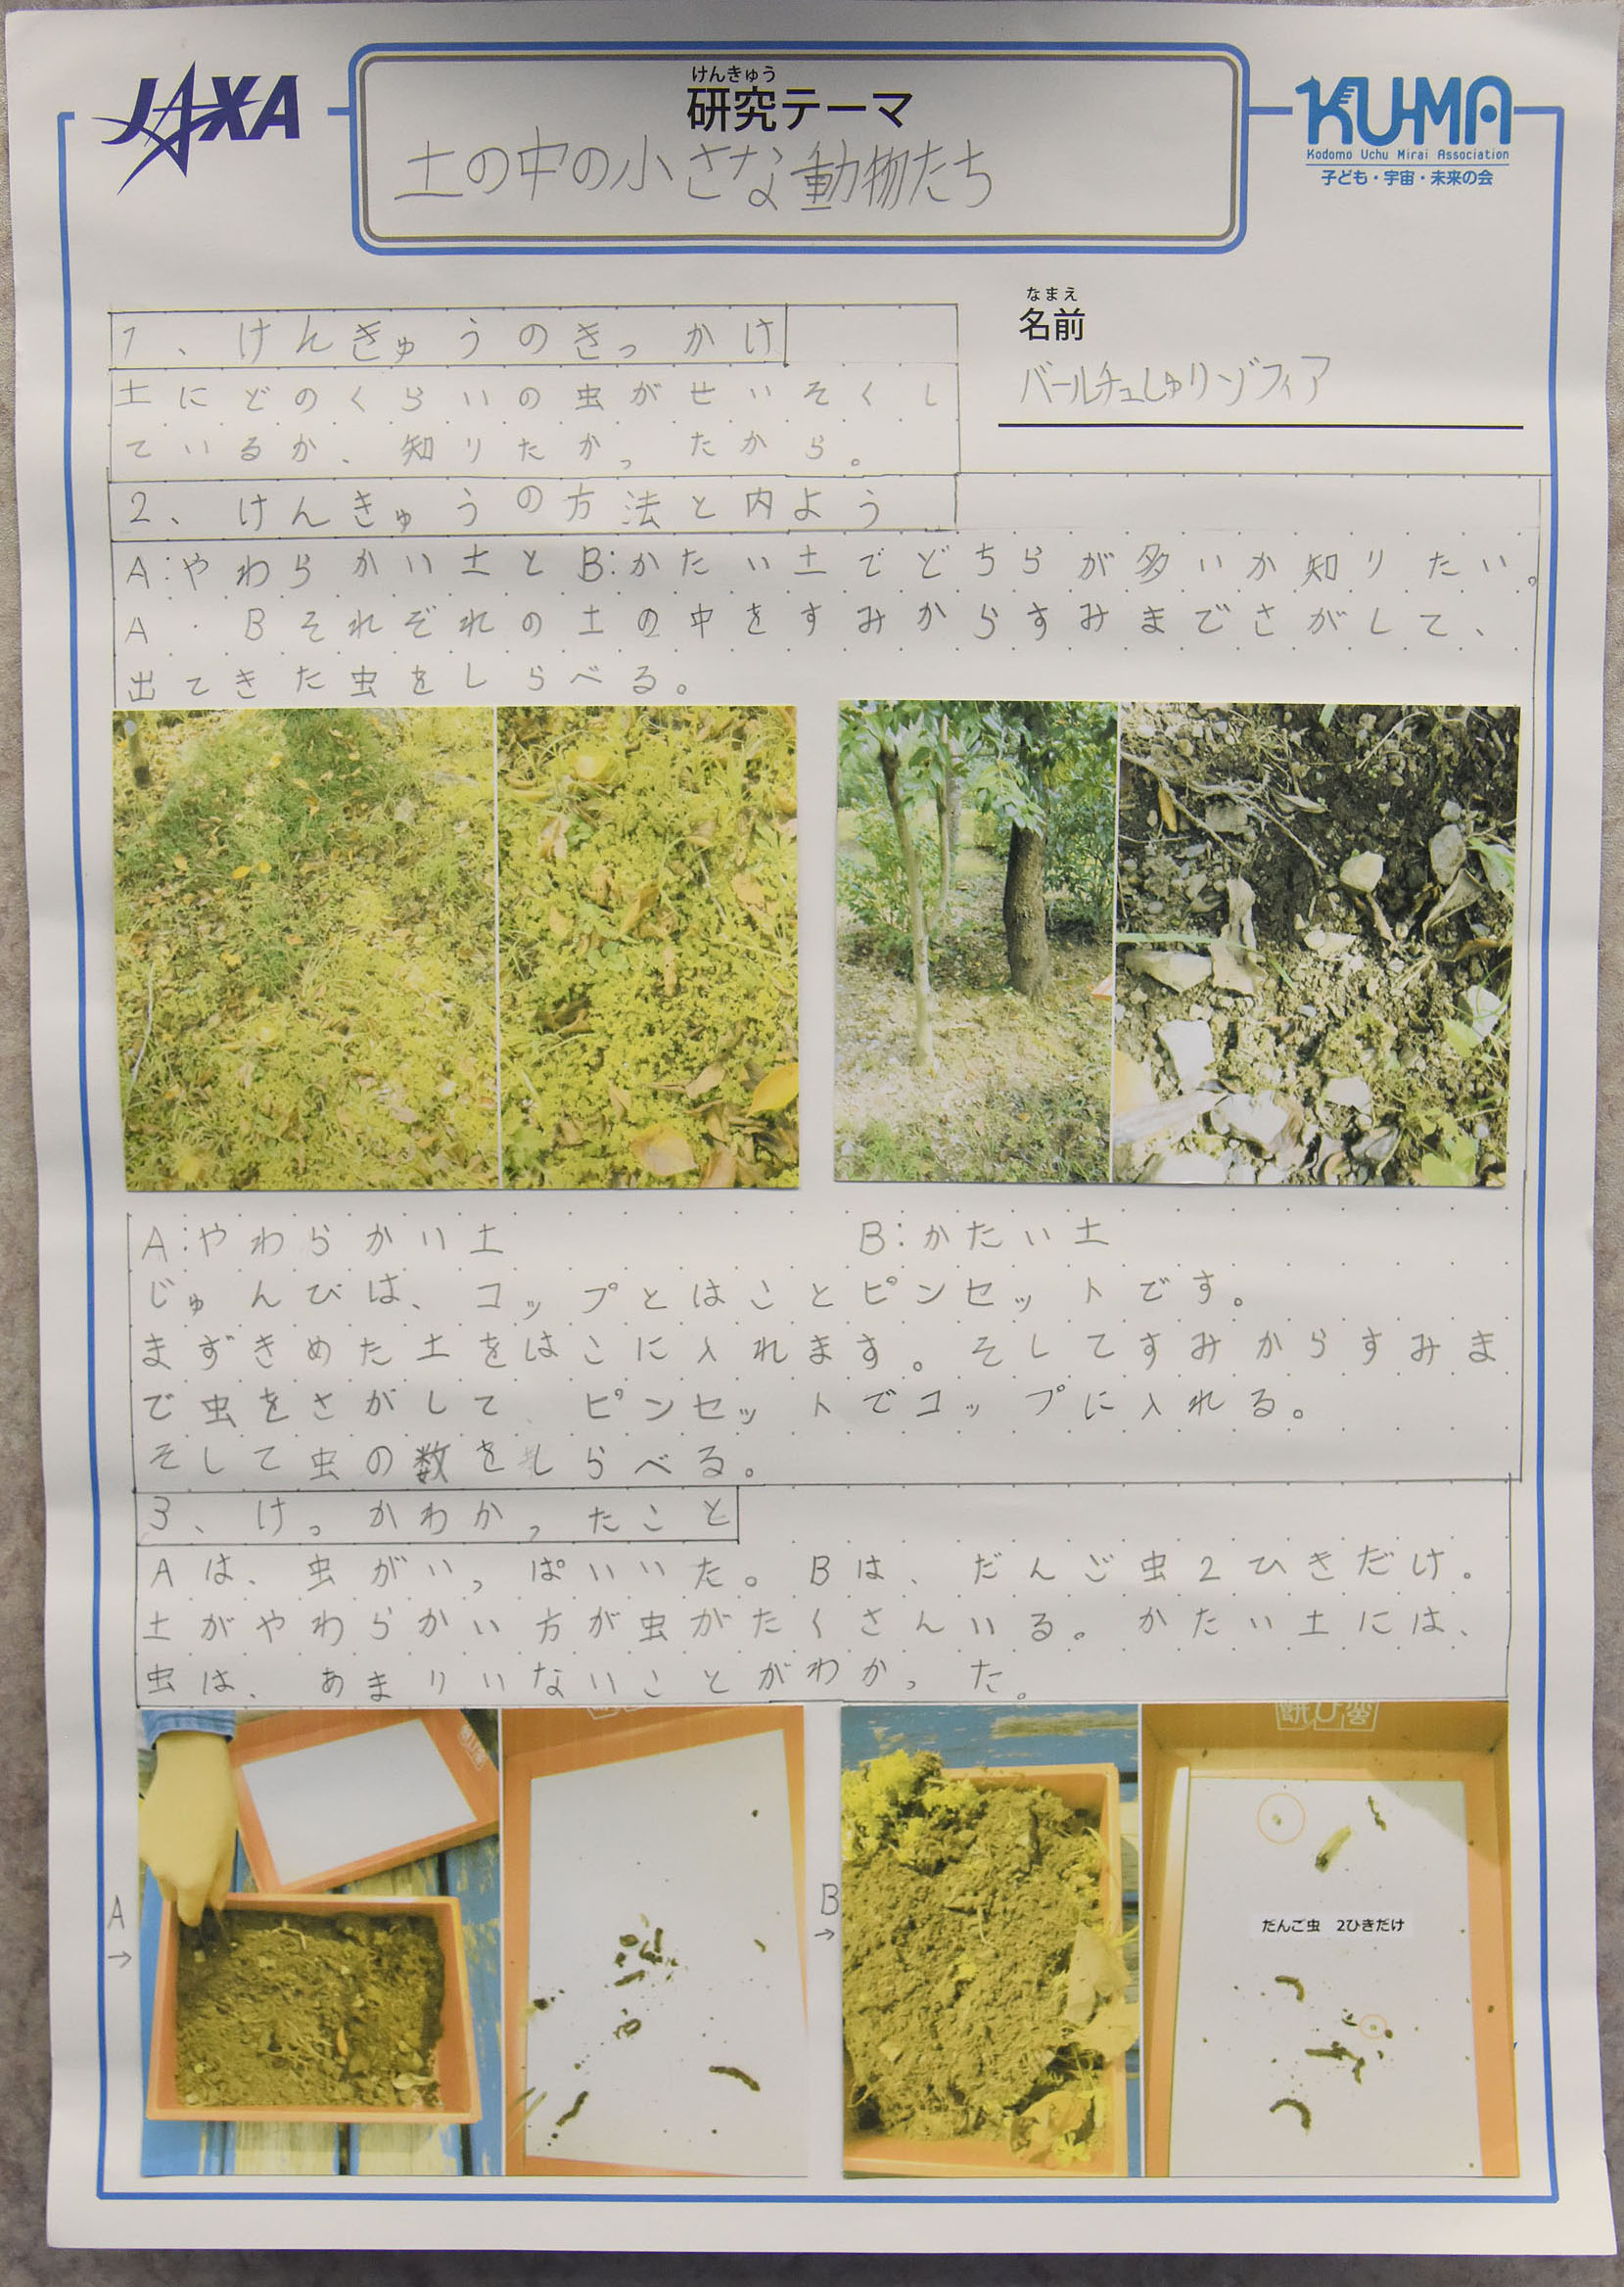 JAXA
けんきゅう
研究テーマ
土の中の小さな動物たち
KU-MA
Kodomo Uchu Mirai Association
子ども・宇宙・未来の会
なまえ
名前
バールチュしゅりンゾフィア
1、けんきゅうのきっかけ
土にどのくらいの虫がせいそくし
ているか、知りたかったから。
2、けんきゅうの方法と内よう
A:やわらかい土とB:かたい土でどちらが多いか知りたい。
A・Bそれぞれの土の中をすみからすみまでさがして、
出てきた虫をしらべる。
A:やわらかい土
B:かたい土
じゅんびは、コップとはことピンセットです。
まずきめた土をはこに入れます。そしてすみからすみま
で虫をさがして、ピンセットでコップに入れる。
そして虫の数をしらべる。
3、けっかわかったこと
Aは、虫がいっぱいいた。Bは、だんご虫2ひきだけ。
土がやわらかい方が虫がたくさんいる。かたい土には、
虫は、あまりいないことがわかった。
A→
B→
だんご虫 2ひきだけ